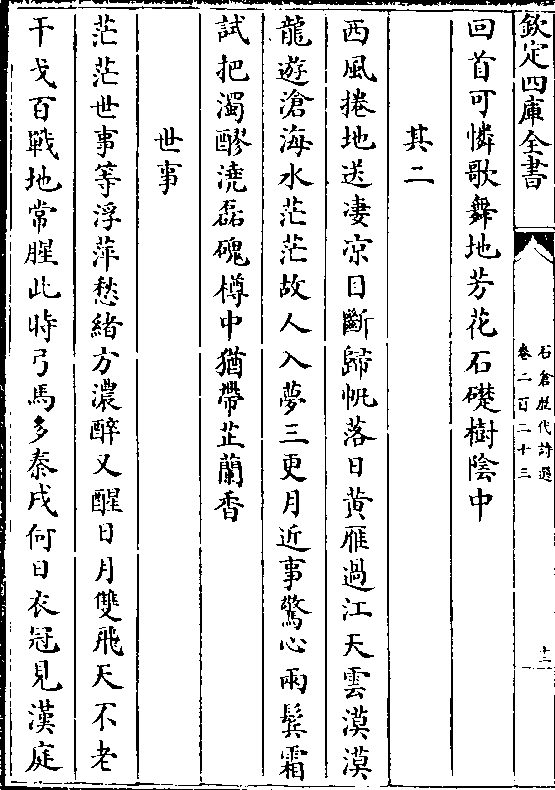 欽定四庫全書
石倉歷代詩選
卷二百二十三
十二
回首可憐歌舞地芳花石礎樹陰中
其二
西風捲地送凄凉目斷歸帆落日黄雁過江天雲漠漠
龍遊滄海水茫茫故人入夢三更月近事驚心兩鬓霜
試把濁醪澆磊磈樽中猶帶芷蘭香
世事
茫茫世事等浮萍愁緒方濃醉又醒日月雙飛天不老
干戈百戰地常腥此時弓馬多秦戍何日衣冠見漢庭